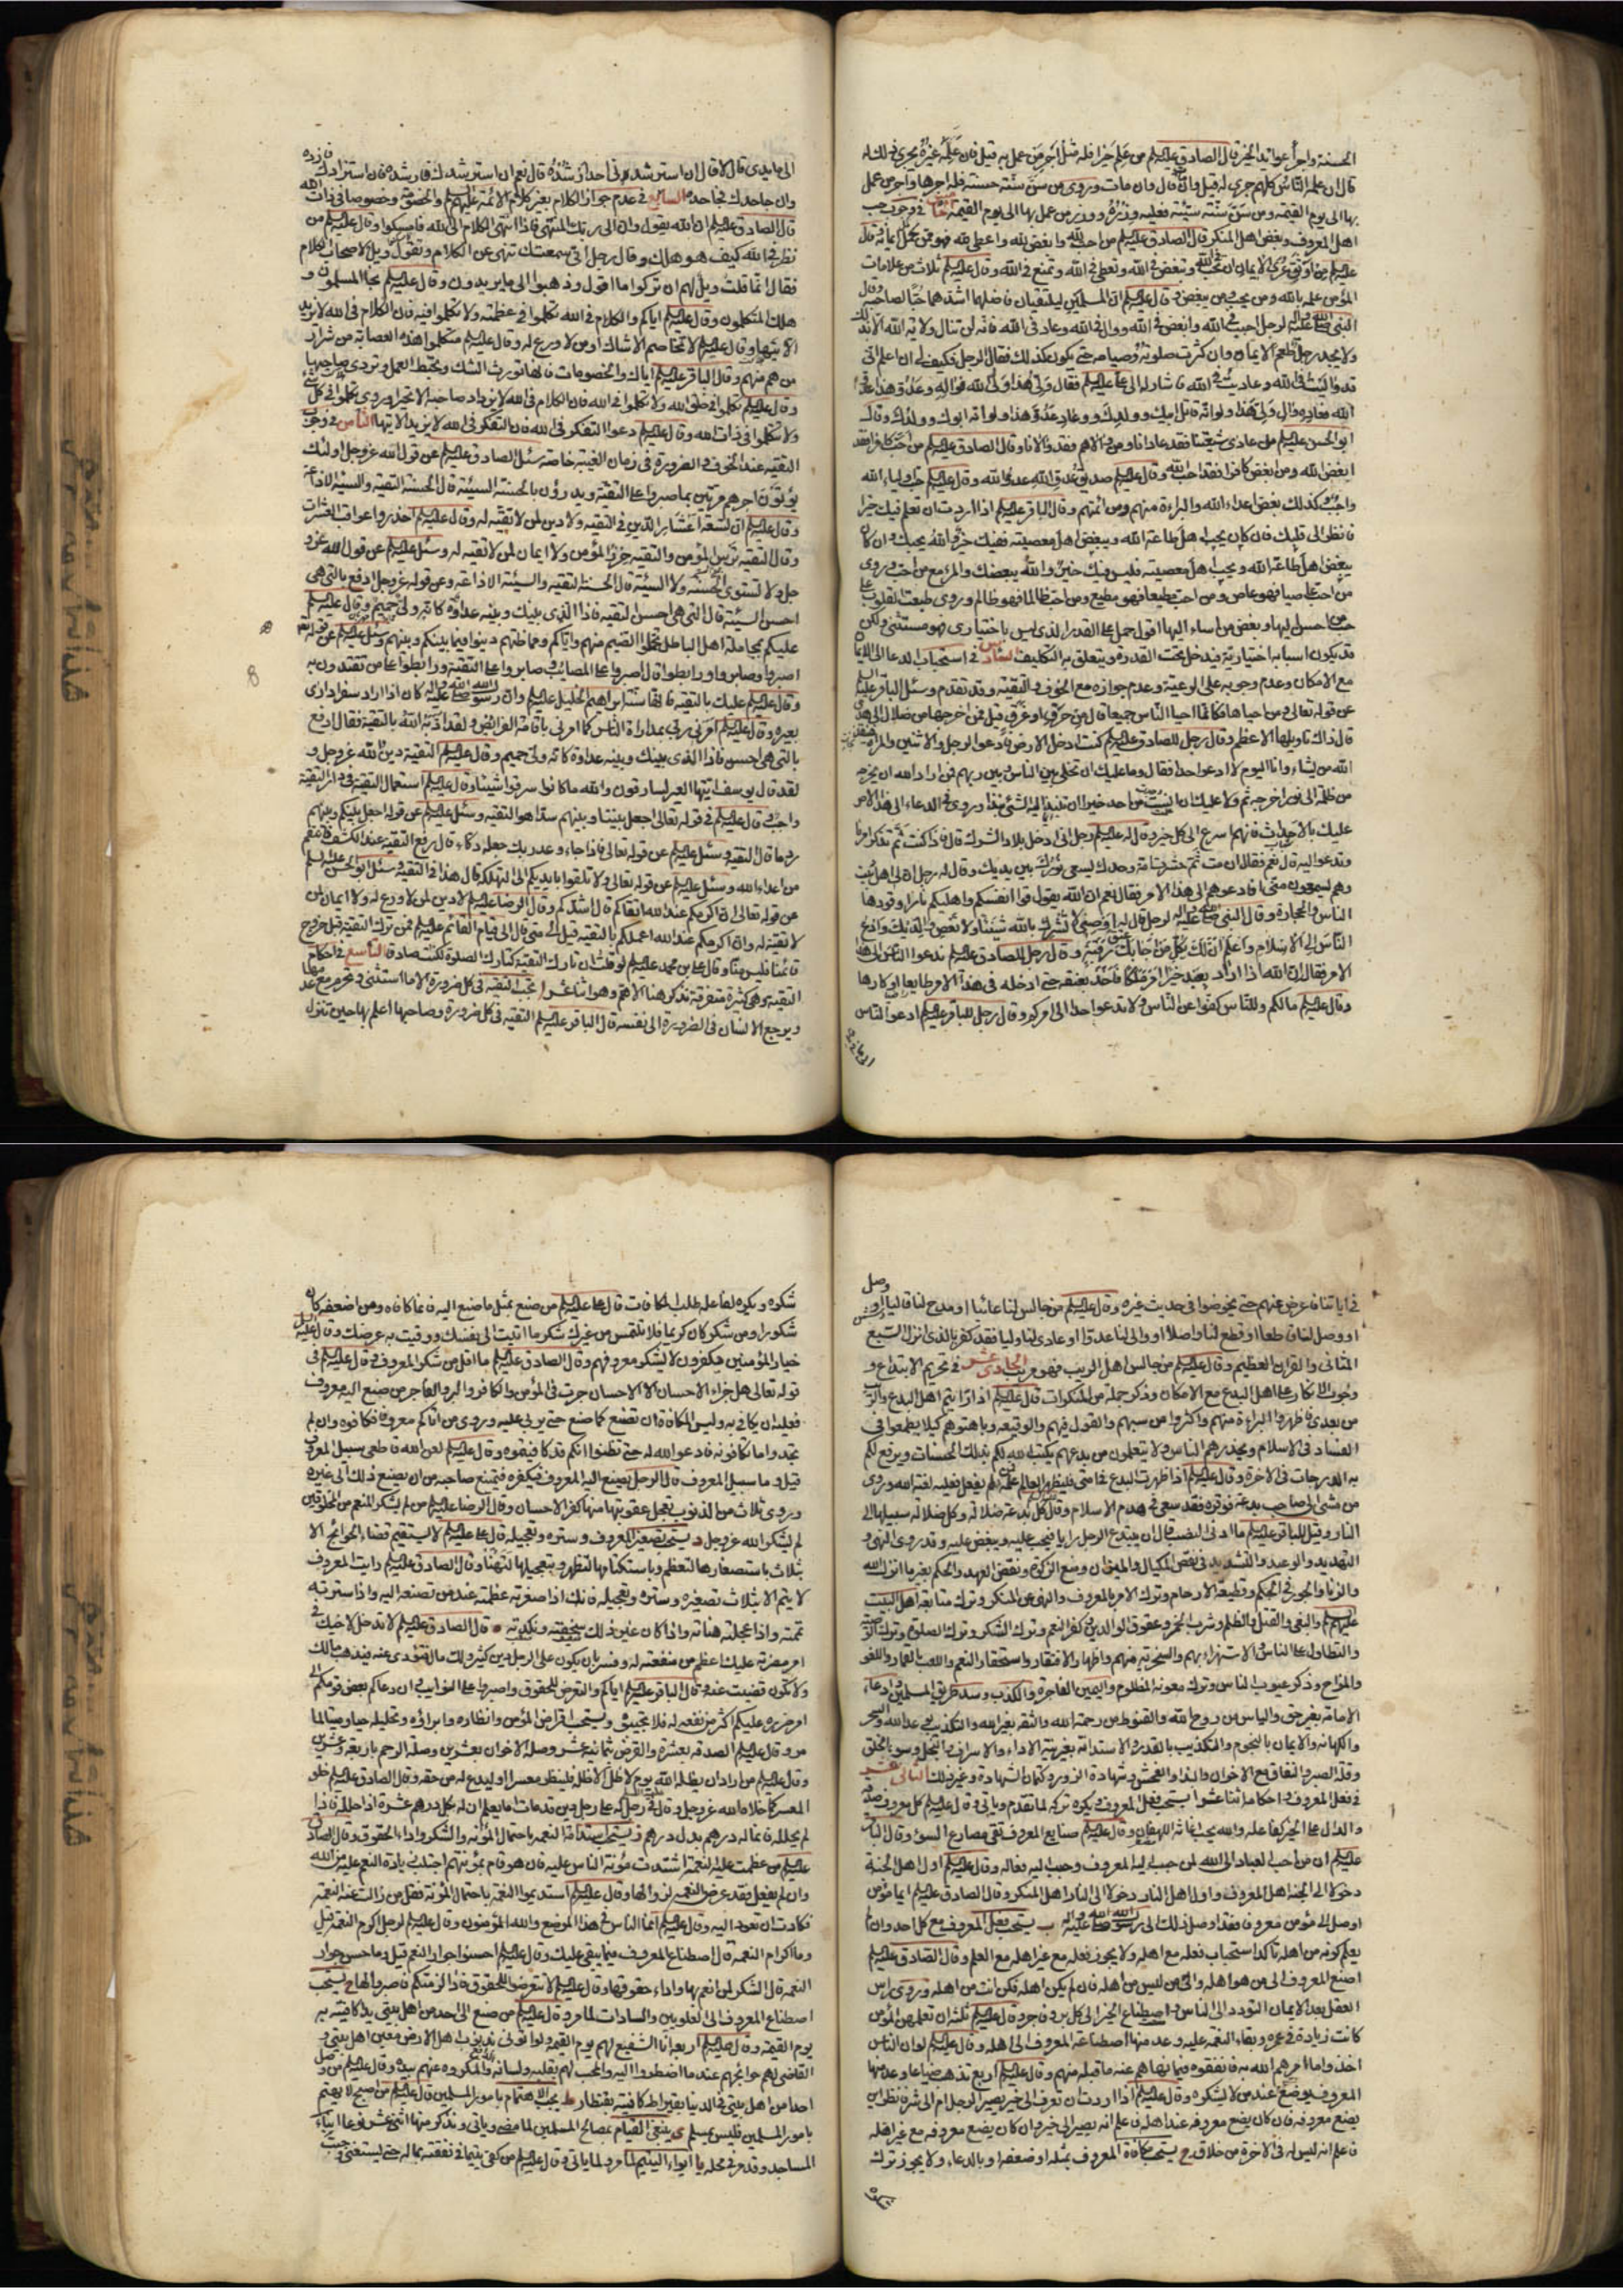 الحسنة واجراء عوائد الخير قال الصادق عليه السلم من علم خيرا فله مثل اجر من عمل به قيل فان علمه غيره يجري ذلك له
قال ان علمه الناس كلهم جرى له قيل وان مات قال وان مات وروي من سن سنة حسنة فله اجرها واجر من عمل
بها الى يوم القيمة ومن سن سنة سيئة فعليه وزره ووزر من عمل بها الى يوم القيمة الخامس في وجوب حب
اهل المعروف وبغض اهل المنكر قال الصادق عليه السلم من احب لله وابغض لله واعطى لله فهو ممن يكمل ايمانه
عليه السلم من اوثق عرى الايمان ان تحب في الله وتبغض في الله وتعطي في الله وتمنع في الله وقال عليه السلم ثلاث من علامات
المؤمن علمه بالله ومن يحب ومن يبغض وقال عليه السلم ان المسلمين ليلتقيان فافضلهما اشدهما حبا لصاحبه
لرجل احبب في الله وابغض في الله ووال في الله وعاد في الله فانه لن تنال ولاية الله الا بذلك
ولا يجد رجل طعم الايمان وان كثرت صلوته وصيامه حتى يكون كذلك فقال الرجل فكيف لي ان اعلم اني
قد واليت في الله وعاديت في الله فاشار له الى علي عليه السلم فقال ولي هذا ولي الله فواله وعدو هذا عدو
الله فعاده وال ولي هذا ولو انه قاتل ابيك وولدك وعاد عدو هذا ولو انه ابوك وولدك وقال
ابو الحسن عليه السلم من عادى شيعتنا فقد عادانا ومن والاهم فقد والانا وقال الصادق عليه السلم من احب كافرا فقد
ابغض الله ومن ابغض كافرا فقد احب الله وقال عليه السلم صديق عدو الله عدو الله وقال عليه السلم حب اولياء الله
واجب وكذلك بغض اعداء الله والبراءة منهم ومن ائمتهم وقال الباقر عليه السلم اذا اردت ان تعلم فيك خيرا
فانظر الى قلبك فان كان يحب اهل طاعة الله ويبغض اهل معصيته ففيك خير والله يحبك وان كان
يبغض اهل طاعة الله ويحب اهل معصيته فليس فيك خير والله يبغضك والمرء مع من احب وروي
من احب عاصيا فهو عاص ومن احب مطيعا فهو مطيع ومن احب ظالما فهو ظالم وروي طبعت القلوب على
حب من احسن اليها وبغض من اساء اليها اقول حمل على القدر الذي ليس باختياري فهو مستثنى ولكن
قد يكون اسبابه اختيارية فيدخل تحت القدرة ويتعلق به التكليف السادس في استحباب الدعاء الى الايمان
مع الامكان وعدم وجوبه على الرعية وعدم جوازه مع الخوف والتقية وقد تقدم وسئل الباقر عليه السلم
عن قوله تعالى ومن احياها فكانما احيا الناس جميعا قال من حرق او غرق قيل فمن اخرجها من ضلال الى هدى
قال ذاك تاويلها الاعظم وقال رجل للصادق عليه السلم كنت ادخل الارض فادعو الرجل والاثنين والمراة
الله من يشاء وانا اليوم لا ادعو احدا فقال وما عليك ان تخلي بين الناس وبين ربهم فمن اراد الله ان يخرجه
من ظلمة الى نور اخرجه ثم قال ولا عليك ان انست من احد خيرا ان تنبذ اليه الشئ نبذا وروي في الدعاء الى هذا الامر
عليك بالاحداث فانهم اسرع الى كل خير وقال له عليه السلم رجل اني ادخل بلاد الشرك قال فاذا كنت ثم تذكر امرنا
وتدعو اليه قال نعم فقال ان مت ثم حشرت امة وحدك يسعى نورك بين يديك وقال له رجل ان لي اهل بيت
وهم يسمعون مني افادعوهم الى هذا الامر فقال نعم ان الله يقول قوا انفسكم واهليكم نارا وقودها
الناس والحجارة وقال النبي صلى الله عليه واله لرجل قال له اوصني لا تشرك بالله شيئا ولا تعص والديك وادع
الناس الى الاسلام واعلم ان لك بكل من اجابك عتق رقبة وقال رجل للصادق عليه السلم ندعو الناس الى هذا
الامر فقال ان الله اذا اراد بعبد خيرا امر ملكا فاخذ بعنقه حتى ادخله في هذا الامر طايعا او كارها
وقال عليه السلم مالكم وللناس كفوا عن الناس ولا تدعوا احدا الى امركم وقال رجل للباقر عليه السلم ادعو الناس
الى ما في يدي قال لا قال ان استرشدني احد ارشده قال نعم ان استرشدك فارشده فان استزادك فزده
وان جاحدك فجاحده السابع في عدم جواز الكلام بغير كلام الائمة عليهم السلم والخصومة وخصوصا في ذات الله
قال الصادق عليه السلم ان الله يقول وان الى ربك المنتهى فاذا انتهى الكلام الى الله فامسكوا وقال عليه السلم من
نظر في الله كيف هو هلك وقال رجل اني سمعتك تنهى عن الكلام وتقول ويل لاصحاب الكلام
فقال انما قلت ويل لهم ان تركوا ما اقول وذهبوا الى ما يريدون وقال عليه السلم نجا المسلمون و
هلك المتكلمون وقال عليه السلم اياكم والكلام في الله تكلموا في عظمته ولا تكلموا فيه فان الكلام في الله لا يزيد
الا تيها وقال عليه السلم لا تخاصم الا شاك او من لا ورع له وقال عليه السلم متكلموا هذه العصابة من شرار
من هم منهم وقال الباقر عليه السلم اياك والخصومات فانها تورث الشك وتحبط العمل وتردي صاحبها
وقال عليه السلم تكلموا في خلق الله ولا تكلموا في الله فان الكلام في الله لا يزداد صاحبه الا تحيرا وروي تكلموا في كل شئ
ولا تتكلموا في ذات الله وقال عليه السلم دعوا التفكر في الله فان التفكر في الله لا يزيد الا تيها الثامن في وجوب
التقية عند الخوف والضرورة في زمان الغيبة خاصة سئل الصادق عليه السلم عن قول الله عز وجل اولئك
يؤتون اجرهم مرتين بما صبروا على التقية ويدرؤن بالحسنة السيئة قال الحسنة التقية والسيئة الاذاعة
وقال عليه السلم ان تسعة اعشار الدين في التقية ولا دين لمن لا تقية له وقال عليه السلم احذروا عواقب العثرات
وقال التقية ترس المؤمن والتقية حرز المؤمن ولا ايمان لمن لا تقية له وسئل عليه السلم عن قول الله عز و
جل ولا تستوي الحسنة ولا السيئة قال الحسنة التقية والسيئة الاذاعة وعن قوله عز وجل ادفع بالتي هي
احسن السيئة قال التي هي احسن التقية فاذا الذي بينك وبينه عداوة كانه ولي حميم وقال عليه السلم
اصبروا وصابروا ورابطوا قال اصبروا على المصائب وصابروا على التقية ورابطوا على من تقتدون به
وقال عليه السلم عليك بالتقية فانها سنة ابراهيم الخليل عليه السلم وان رسول الله صلى الله عليه واله كان اذا اراد سفرا دارى
بعيره وقال عليه السلم امرني ربي بمداراة الناس كما امرني باقامة الفرائض ولقد ادبه الله بالتقية فقال ادفع
بالتي هي احسن فاذا الذي بينك وبينه عداوة كانه ولي حميم وقال عليه السلم التقية دين الله عز وجل و
لقد قال يوسف ايتها العير انكم لسارقون والله ما كانوا سرقوا شيئا وقال عليه السلم استعمال التقية في دار التقية
واجب وقال عليه السلم في قوله تعالى اجعل بيننا وبينهم سدا هو التقية وسئل عليه السلم عن قوله اجعل بينكم وبينهم
ردما قال التقية وسئل عليه السلم عن قوله تعالى فاذا جاء وعد ربك جعله دكاء قال رفع التقية عند الكشف فانتقم
من اعداء الله وسئل عليه السلم عن قوله تعالى ولا تلقوا بايديكم الى التهلكة قال هذا في التقية وسئل ابو الحسن عليه السلم
عن قوله تعالى ان اكرمكم عند الله اتقاكم قال اشدكم وقال الرضا عليه السلم لا دين لمن لا ورع له ولا ايمان لمن
لا تقية له وان اكرمكم عند الله اعملكم بالتقية قيل الى متى قال الى قيام القائم عليه السلم فمن ترك التقية قبل خروج
قائمنا فليس منا وقال علي بن محمد عليه السلم لو قلت ان تارك التقية كتارك الصلوة لكنت صادقا التاسع في احكام
التقية وهي كثيرة متفرقة نذكر هنا الاهم وهو اثنا عشر ا تجب التقية في كل ضرورة الا ما استثنى وتحرم مع عدمها
ويرجع الانسان في الضرورة الى نفسه قال الباقر عليه السلم التقية في كل ضرورة وصاحبها اعلم بها حين تنزل
في اياتنا فاعرض عنهم حتى يخوضوا في حديث غيره وقال عليه السلم من جالس لنا عائبا او مدح لنا قاليا او وصل
او وصل لنا قاطعا او قطع لنا واصلا او والى لنا عدوا او عادى لنا وليا فقد كفر بالذي انزل السبع
المثاني والقران العظيم وقال عليه السلم من جالس اهل الريب فهو مريب الحادي عشر في تحريم الابتداع و
وجوب الانكار على اهل البدع مع الامكان وذكر جملة من المنكرات قال عليه السلم اذا رايتم اهل البدع والريب
من بعدي فاظهروا البراءة منهم واكثروا من سبهم والقول فيهم والوقيعة وباهتوهم كيلا يطمعوا في
الفساد في الاسلام ويحذرهم الناس ولا يتعلمون من بدعهم يكتب الله لكم بذلك الحسنات ويرفع لكم
به الدرجات في الاخرة وقال عليه السلم اذا ظهرت البدع في امتي فليظهر العالم علمه فمن لم يفعل فعليه لعنة الله وروي
من مشى الى صاحب بدعة فوقره فقد سعى في هدم الاسلام وقال كل بدعة ضلالة وكل ضلالة سبيلها الى
النار وقيل للباقر عليه السلم ما ادنى النصب قال ان يبتدع الرجل رايا فيحب عليه ويبغض عليه وقد روي النهي و
التهديد والوعيد والتشديد في نقص المكيال والميزان ومنع الزكوة ونقض العهد والحكم بغير ما انزل الله
والزنا والجور في الحكم وقطيعة الارحام وترك الامر بالمعروف والنهي عن المنكر وترك متابعة اهل البيت
عليهم السلم والبغي والقتل والظلم وشرب الخمر وعقوق الوالدين وكفر النعم وترك الشكر وترك الصلوة
والتطاول على الناس والاستهزاء بهم والسخرية منهم واظهار الافتقار واستحقار النعم واللعب بالقمار واللغو
والمزاح وذكر عيوب الناس وترك معونة المظلوم واليمين الفاجرة والكذب وسد طريق المسلمين وادعاء
الامامة بغير حق والياس من روح الله والقنوط من رحمة الله والثقة بغير الله والتكذيب بوعد الله والسحر
والكهانة والايمان بالنجوم والتكذيب بالقدر والاستدانة بغير نية الاداء والاسراف والبخل وسوء الخلق
وقلة الصبر والنفاق مع الاخوان والفحش وشهادة الزور وكتمان الشهادة وغير ذلك الثاني عشر
في فعل المعروف واحكامه اثنا عشر ا يستحب فعل المعروف ويكره تركه لما تقدم وياتي وقال عليه السلم كل معروف صدقة
والدال على الخير كفاعله والله يحب اغاثة اللهفان وقال عليه السلم صنايع المعروف تقي مصارع السوء وقال الباقر
عليه السلم ان من احب العباد الى الله لمن حبب اليه المعروف وحبب اليه فعاله وقال عليه السلم اول اهل الجنة
دخولا الى الجنة اهل المعروف واول اهل النار دخولا الى النار اهل المنكر وقال الصادق عليه السلم ايما مؤمن
اوصل الى مؤمن معروفا فقد اوصل ذلك الى رسول الله صلى الله عليه واله ب يستحب فعل المعروف مع كل احد وان لم
يعلم كونه من اهله وتاكد استحباب فعله مع اهله ولا يجوز فعله مع غير اهله مع العلم وقال الصادق عليه السلم
اصنع المعروف الى من هو اهله والى من ليس من اهله فان لم يكن اهله فكن انت من اهله وروي راس
العقل بعد الايمان التودد الى الناس واصطناع الخير الى كل بر وفاجر وقال عليه السلم ثلثة ان تعلمهن المؤمن
كانت زيادة في عمره وبقاء النعمة عليه وعد منها اصطناعه المعروف الى اهله وقال عليه السلم لو ان الناس
اخذوا ما امرهم الله به فانفقوه فيما نهاهم عنه ما قبله منهم وقال عليه السلم اربع تذهب ضياعا وعد منها
المعروف يوضع عند من لا يشكره وقال عليه السلم اذا اردت ان تعرف الى خير يصير الرجل ام الى شر فانظر اين
يضع معروفه فان كان يضع معروفه عند اهله فاعلم انه يصير الى خير وان كان يضع معروفه مع غير اهله
فاعلم انه ليس له في الاخرة من خلاق ج يستحب مكافاة المعروف بمثله او ضعفه او بالدعاء ولا يجوز ترك
شكره
شكره ويكره لفاعله طلب المكافات قال علي عليه السلم من صنع بمثل ما صنع اليه فانما كافاه ومن اضعفه كان
شكورا ومن شكر كان كريما فلا تلتمس من غيرك شكر ما اتيت الى نفسك ووقيت به عرضك وقال عليه السلم
خيار المؤمنين مكفرون لا يشكر معروفهم وقال الصادق عليه السلم ما اقل من شكر المعروف وقال عليه السلم في
قوله تعالى هل جزاء الاحسان الا الاحسان جرت في المؤمن والكافر والبر والفاجر من صنع اليه معروف
فعليه ان يكافي به وليس المكافاة ان تصنع كما صنع حتى يربى عليه وروي من اتاكم معروفا فكافوه وان لم
تجدوا ما تكافونه فادعوا الله له حتى تظنوا انكم قد كافيتموه وقال عليه السلم لعن الله قاطعي سبيل المعروف
قيل وما سبيل المعروف قال الرجل يصنع اليه المعروف فيكفره فيمنع صاحبه من ان يصنع ذلك الى غيره
وروي ثلاث من الذنوب تعجل عقوبتها منها كفر الاحسان وقال الرضا عليه السلم من لم يشكر المنعم من المخلوقين
لم يشكر الله عز وجل د يستحب تصغير المعروف وستره وتعجيله قال علي عليه السلم لا يستقيم قضاء الحوائج الا
بثلاث باستصغارها لتعظم وباستكتامها لتظهر وبتعجيلها لتهنأ وقال الصادق عليه السلم رايت المعروف
لا يتم الا بثلاث تصغيره وستره وتعجيله فانك اذا صغرته عظمته عند من تصنعه اليه واذا سترته
تممته واذا عجلته هناته واذا كان غير ذلك سخفته ونكدته ه قال الصادق عليه السلم لا تدخل لاخيك في
امر مضرته عليك اعظم من منفعته له وفسر بان يكون على الرجل دين كثير ولك مال فتؤدي عنه فيذهب مالك
ولا تكون قضيت عنه وقال الباقر عليه السلم اياكم والتعرض للحقوق واصبروا على النوائب وان دعاكم بعض قومكم الى
امر ضرره عليكم اكثر من نفعه له فلا تجيبوه و يستحب اقراض المؤمن وانظاره وابرائه وتحليله حيا وميتا لما
مر وقال عليه السلم الصدقة بعشرة والقرض بثمانية عشر وصلة الاخوان بعشرين وصلة الرحم باربعة وعشرين
وقال عليه السلم من اراد ان يظله الله يوم لا ظل الا ظله فلينظر معسرا او ليدع له من حقه وقال الصادق عليه السلم خلوا
المعسر كما خلاه الله عز وجل وقال في رجل له على رجل دين قد مات اما يعلم ان له بكل درهم عشرة اذا حلله فاذا
لم يحلله فانما له درهم بدل درهم ز يستحب استدامة النعمة باحتمال المؤنة والشكر واداء الحقوق وقال الصادق
عليه السلم من عظمت عليه النعمة اشتدت مؤنة الناس عليه فان هو قام بمؤنتهم اجتلب زيادة النعم عليه من الله
وان لم يفعل فقد عرض النعمة لزوالها وقال عليه السلم استديموا النعمة باحتمال المؤنة فقل من زالت عنه النعمة
فكادت ان تعود اليه وقال عليه السلم انما الناس في هذا الموضع والله المؤمنون وقال عليه السلم لرجل اكرم النعمة قيل
وما اكرام النعمة قال اصطناع المعروف فيما يبقى عليك وقال عليه السلم احسنوا جوار النعم قيل وما حسن جوار
النعمة قال الشكر لمن انعم بها واداء حقوقها وقال عليه السلم لا تتعرضوا للحقوق فاذا لزمتكم فاصبروا لها ح يستحب
اصطناع المعروف الى العلويين والسادات لما مر وقال عليه السلم من صنع الى احد من اهل بيتي يدا كافيته به
يوم القيمة وقال عليه السلم اربعة انا الشفيع لهم يوم القيمة ولو اتوني بذنوب اهل الارض معين اهل بيتي و
القاضي لهم حوائجهم عند ما اضطروا اليه والمحب لهم بقلبه ولسانه والدافع المكروه عنهم بيده وقال عليه السلم من وصل
احدا من اهل بيتي في الدنيا بقيراط كافيته بقنطار ط يجب الاهتمام بامور المسلمين قال عليه السلم من اصبح لا يهتم
بامور المسلمين فليس بمسلم ى ينبغي القيام بمصالح المسلمين لما مضى وياتي ونذكر منها اثنى عشر نوعا ا بناء
المساجد وقد مر في محله يا ايواء اليتيم لما مر ولما ياتي وقال عليه السلم من كفى يتيما في نفقته بماله حتى يستغني وجبت